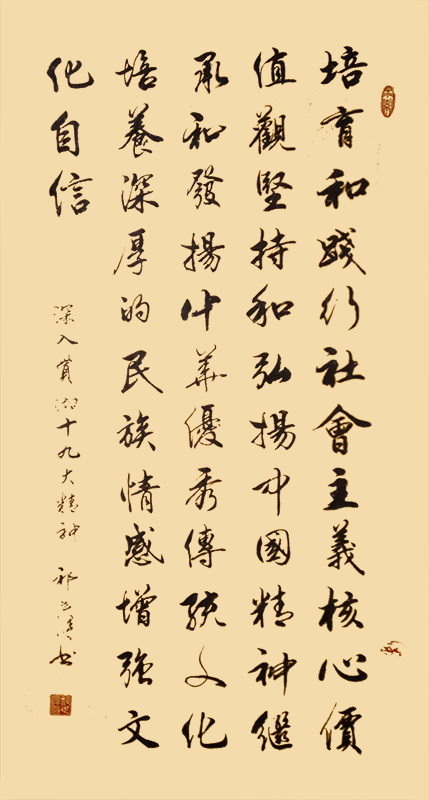 培育和踐行社會主義核心價
值觀堅持和弘揚中國精神繼
承和發揚中華優秀傳統文化
培養深厚的民族情感增強文
化自信
深入貫十九大精神
祁書